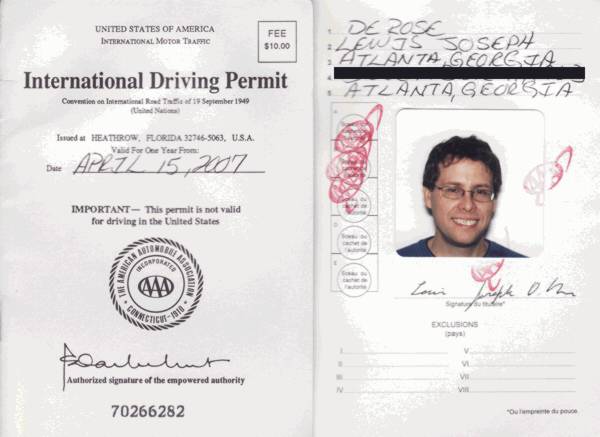 UNITED STATES OF AMERICA
INTERNATIONAL MOTOR TRAFFIC
FEE
$10.00
International Driving Permit
Convention on International Road Traffic of 19 September 1949
(United Nations)
Issued at HEATHROW, FLORIDA 32746-5063, U.S.A.
Valid For One Year From:
Date APRIL 15, 2007
IMPORTANT— This permit is not valid
for driving in the United States
THE AMERICAN AUTOMOBILE ASSOCIATION
INCORPORATED
AAA
CONNECTICUT-1910
Authorized signature of the empowered authority
70266282
1. DE ROSE
2. LEWIS JOSEPH
3. ATLANTA, GEORGIA
5. ATLANTA, GEORGIA
A
Sceau ou
cachet de
l'autorité
Sceau ou
cachet de
l'autorité
E
Sceau ou
cachet de
l'autorité
Signature du titulaire*
EXCLUSIONS
(pays)
I V
II VI
III VII
IV VIII
*Ou l'empreinte du pouce.